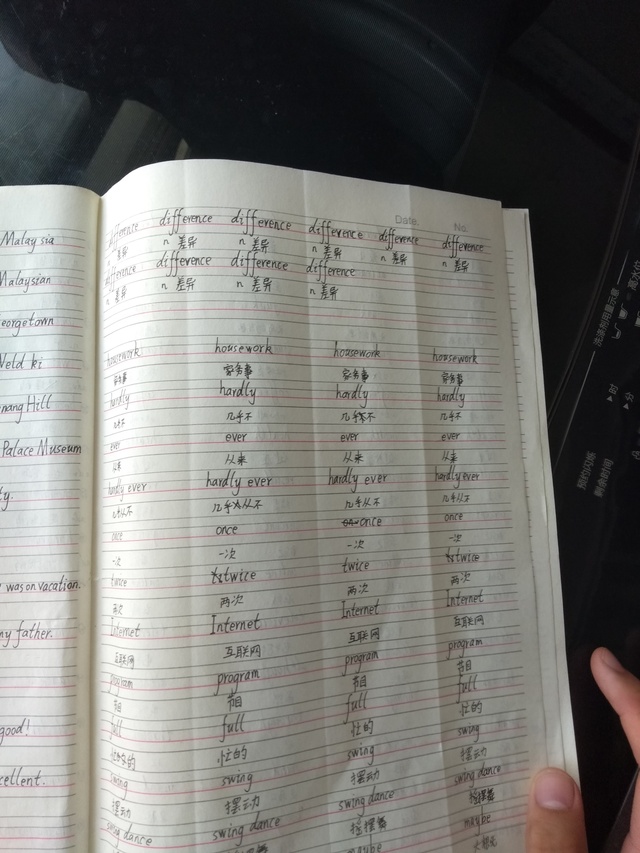 Malaysia
Malaysian
Georgetown
Weld
Penang Hill
Palace Museum
was on vacation.
my father.
good!
excellent.
Date. No.
difference difference difference difference difference difference
n 差异 n 差异 n 差异 n 差异 n 差异 n 差异
difference difference difference difference
n 差异 n 差异 n 差异 n 差异
housework housework housework housework
家务事 家务事 家务事 家务事
hardly hardly hardly hardly
几乎不 几乎不 几乎不 几乎不
ever ever ever ever
从来 从来 从来 从来
hardly ever hardly ever hardly ever hardly ever
几乎从不 几乎从不 几乎从不 几乎从不
once once once once
一次 一次 一次
twice twice twice twice
两次 两次 两次 两次
Internet Internet Internet Internet
互联网 互联网 互联网 互联网
program program program program
节目 节目 节目 节目
full full full full
忙的 忙的 忙的 忙的
swing swing swing swing
摆动 摆动 摆动 摆动
swing dance swing dance swing dance swing dance
摇摆舞 摇摆舞 摇摆舞
maybe maybe
时 分
剩余时间